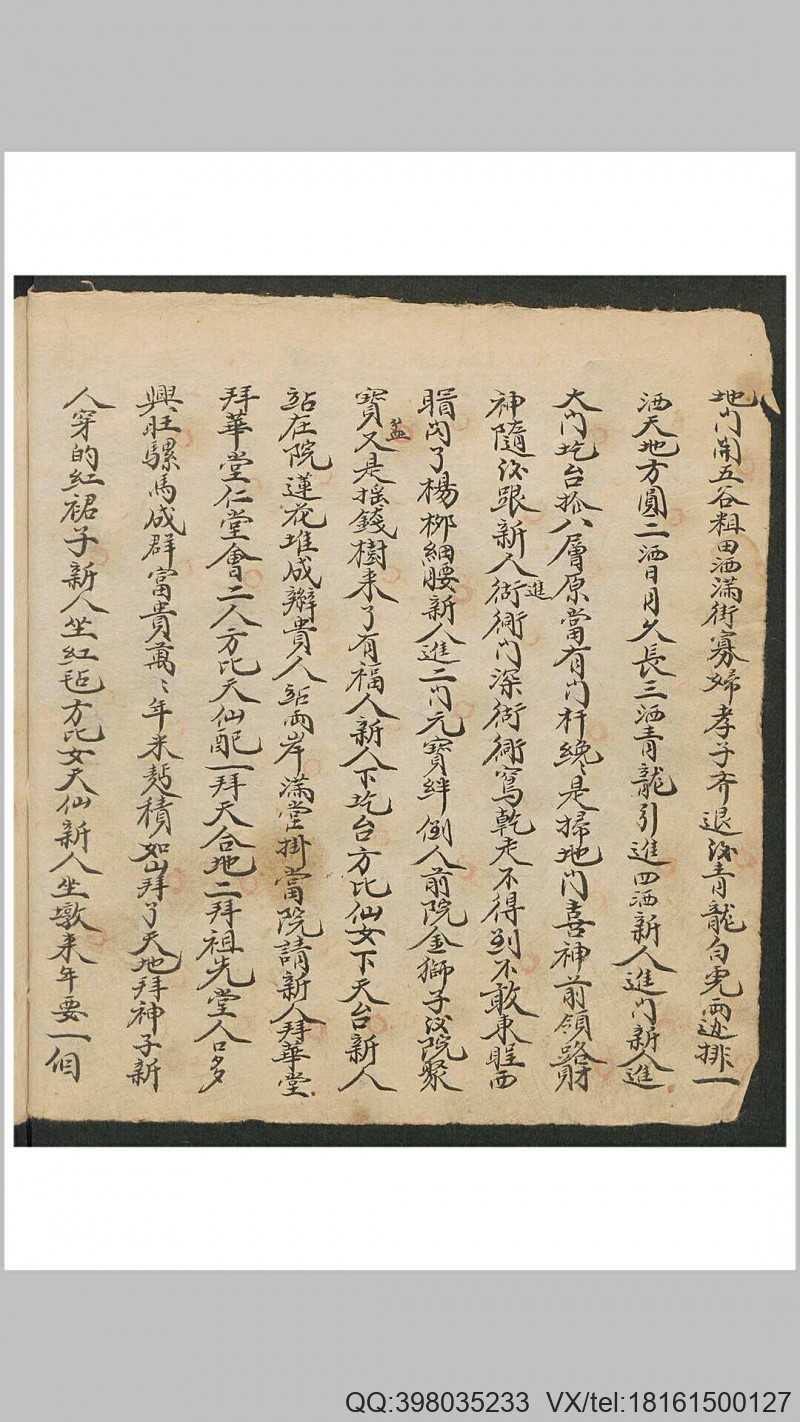 地门開五谷粗田洒满街寡婦孝子齐退後青龍白虎兩边排一
洒天地方圓二洒日月久長三洒青龍引進四洒新人進门新人進
大门圪台拾八層原當有门杆纔是掃地门喜神前領路財
神隨後跟新人進衚衕门深衚衕窎乾走不得到不敢東睈西
睸闪了楊栁細腰新人進二门元寶絆倒人前院金獅子後院聚
寶盆又是摇錢樹来了有福人新人下圪台方比仙女下天台新人
站在院蓮花堆成瓣貴人站兩岸满堂掛當院請新人拜華堂
拜華堂仁堂會二人方比天仙配一拜天合地二拜祖先堂人口多
興旺騾馬成群富貴萬〻年米麸積如山拜了天地拜神子新
人穿的紅裙子新人坐紅毡方比女天仙新人坐墩来年要一個
QQ:398035233 VX/tel:18161500127